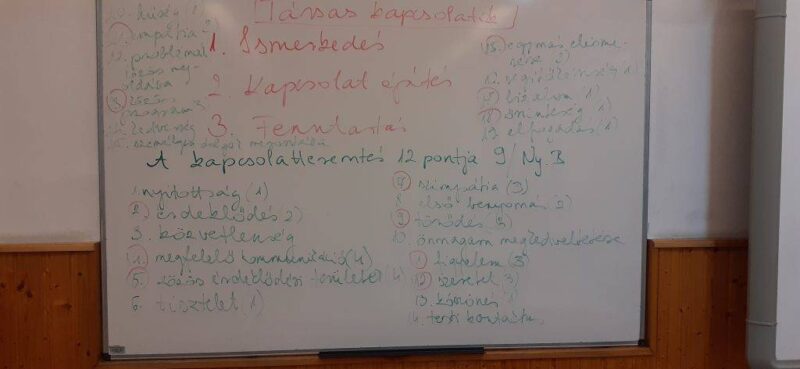 Társas kapcsolatok
1. Ismerkedés
2. Kapcsolat építés
3. Fenntartás
10. hűség (1)
11. empátia
12. problémák
közös meg-
oldása
13. közös
programok
14. kedvesség
15. személyes dolgok megosztása
15. egymás elismé-
rése
16. segítőkészség (1)
17. bizalom (1)
18. őszinteség (1)
19. elfogadás (1)
A kapcsolatteremtés 12 pontja 9/Ny.B
1. nyitottság (1)
2. érdeklődés (2)
3. közvetlenség
4. megfelelő kommunikáció (4)
5. közös érdeklődési terület (4
6. tisztelet (1)
7. szimpátia (3)
8. első benyomás (2)
9. törődés (2)
10. önmagam megkedveltetése
türelem (3)
12. szeretet (3)
13. köszönés (1)
14. testi kontaktus